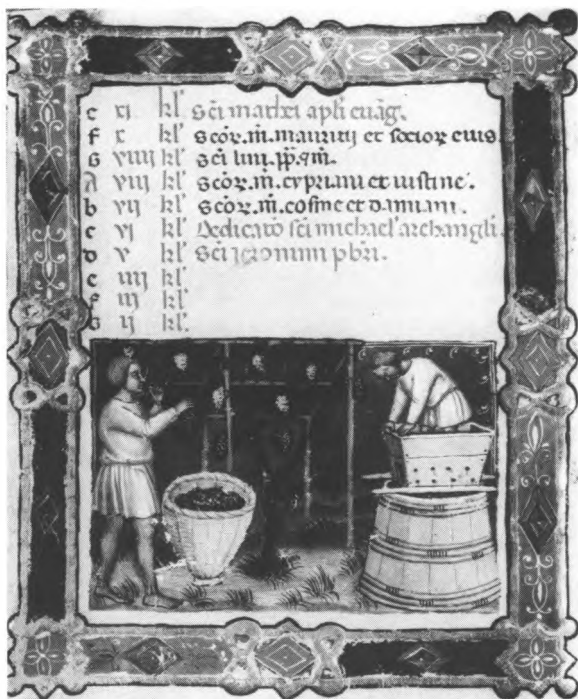 e xi kl' Sci mathei apli euāg.
f x kl' Scōr. m̄. mauritij et socior eius.
G viiii kl' Sci lini. pp. ꝯm̄.
A viii kl' Scōr. m̄. cypriani et iustine.
b vii kl' Scōr. m̄. cosme et damiani.
c vi kl' Dedicatō sci michael' archangli.
d v kl' Sci jeronimi pbri.
e iiii kl'
f iii kl'
G ii kl'.